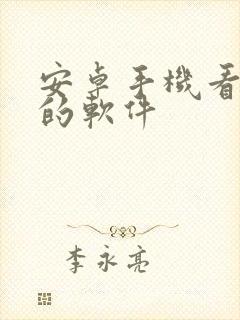 安卓手機看
的軟件
李永亮